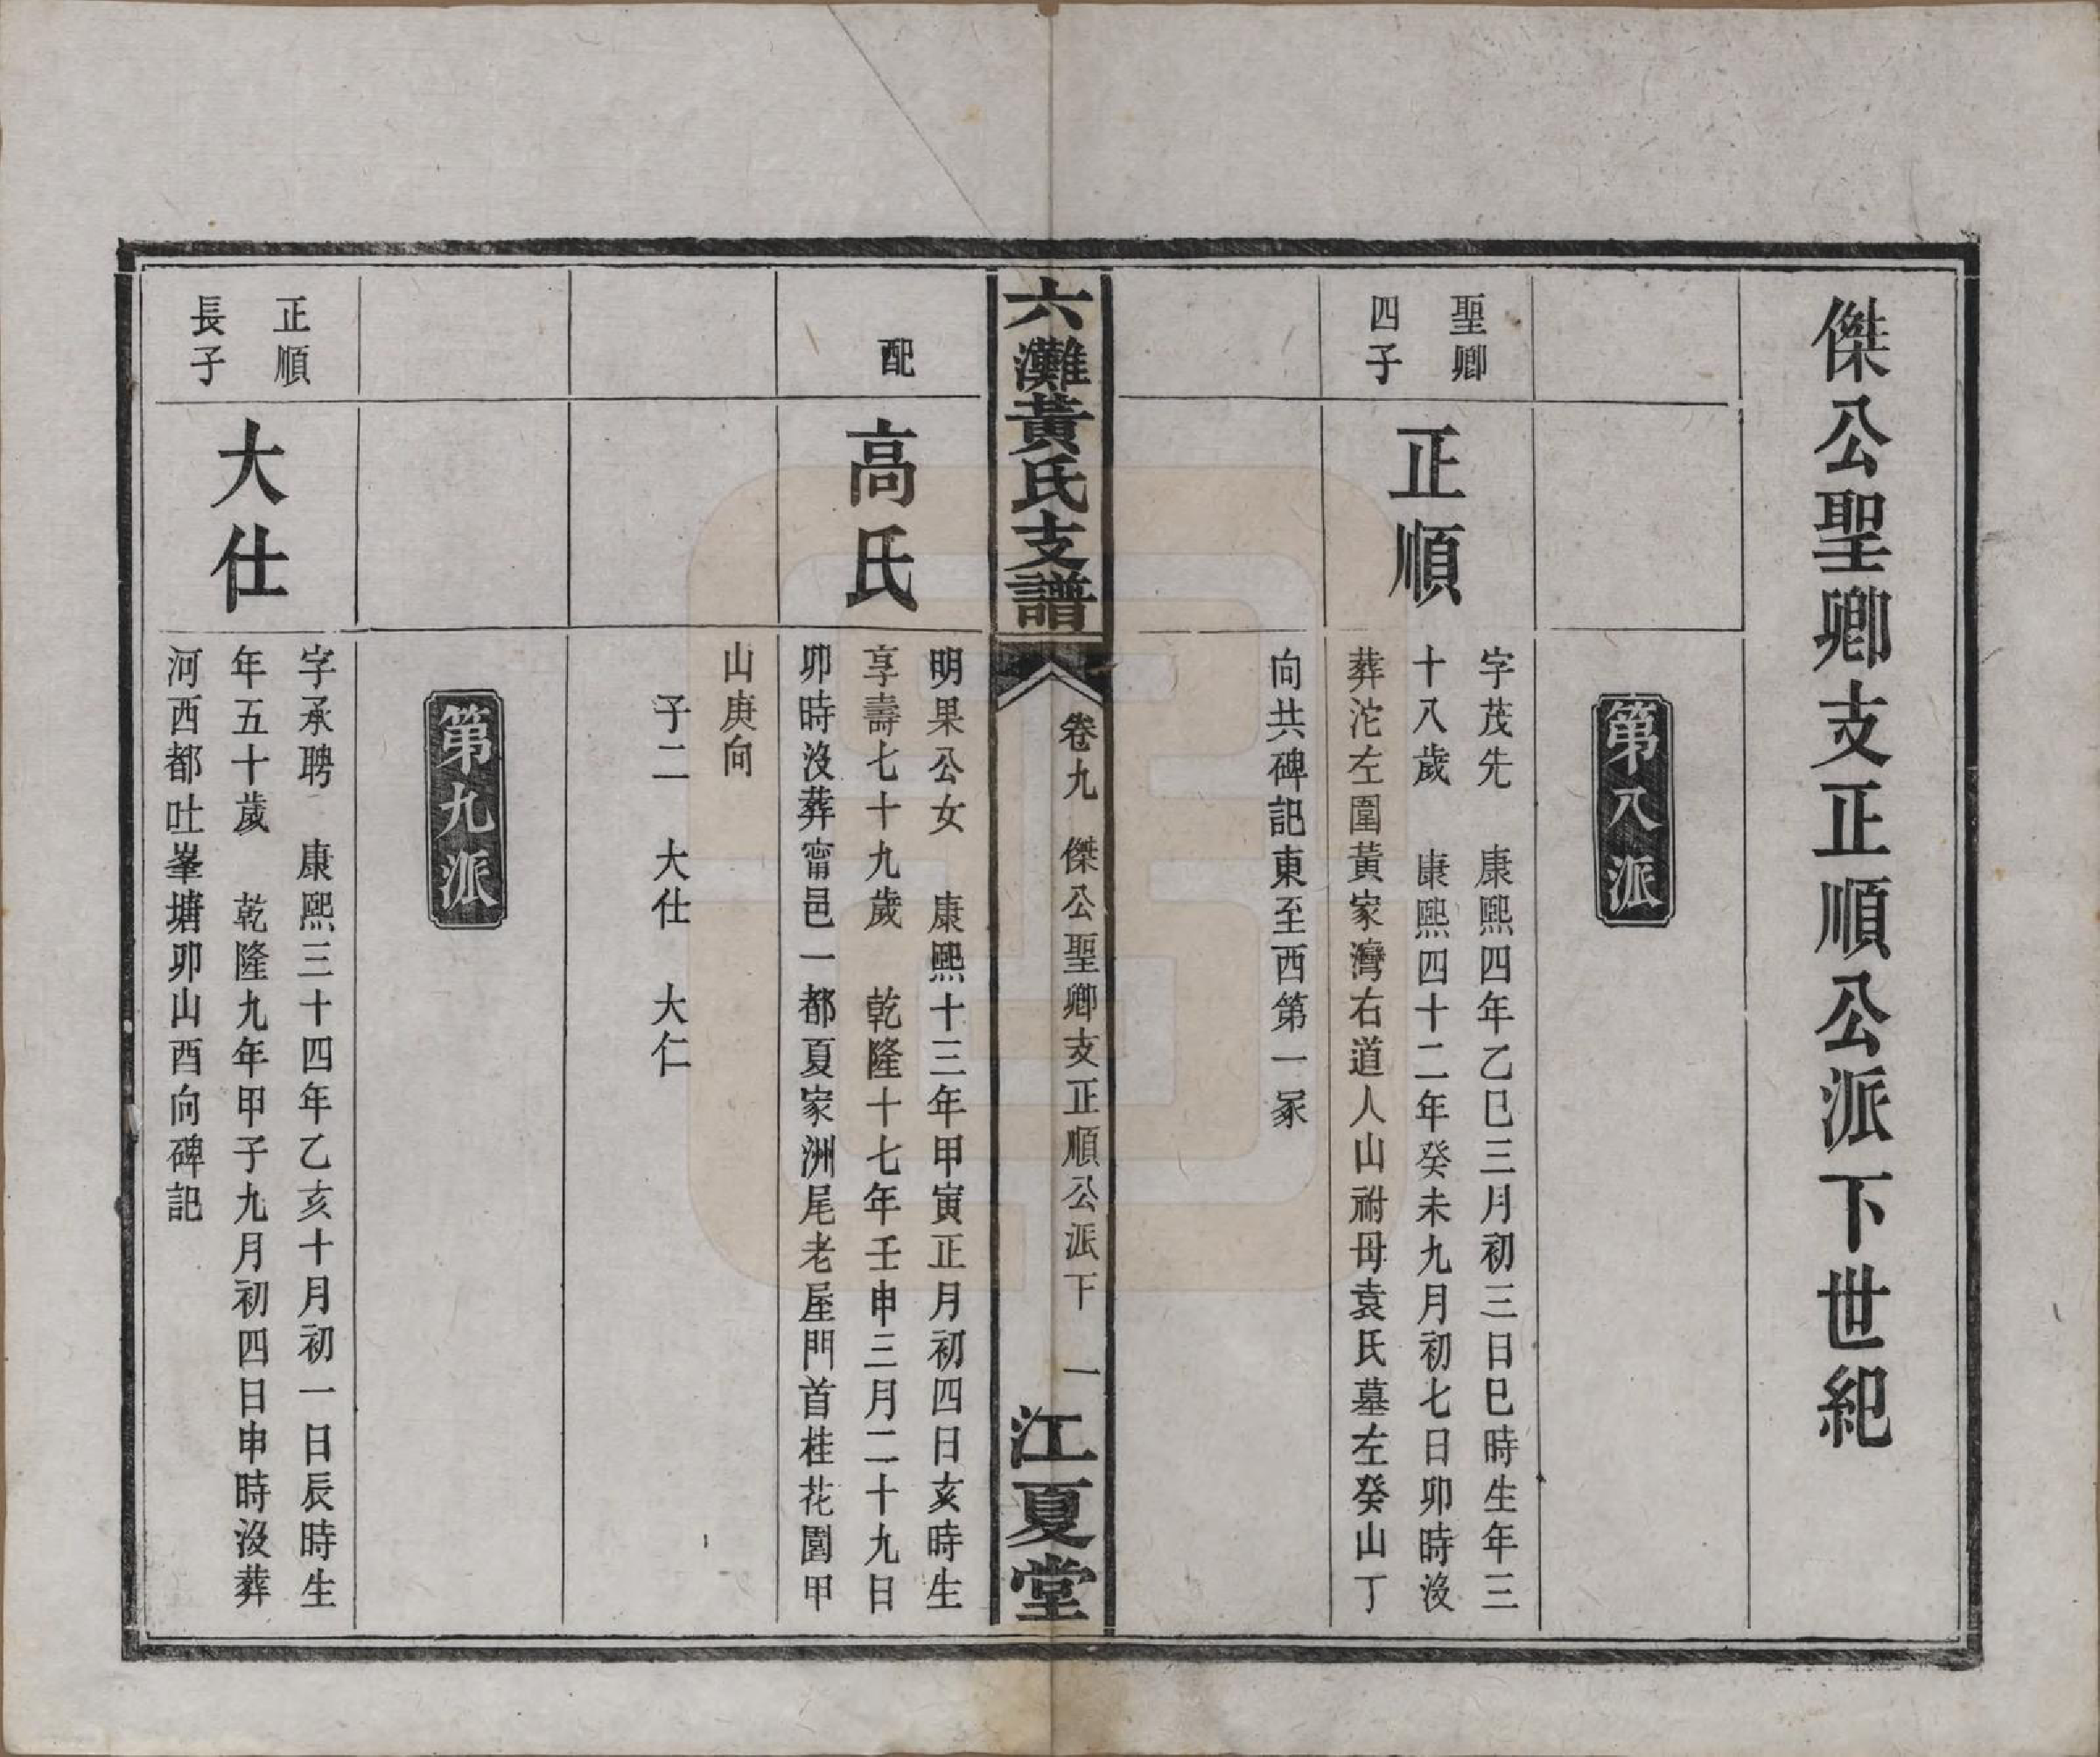 傑公聖卿支正順公派下世紀
第八派
聖卿
四子
正順
字茂先　康熙四年乙巳三月初三日巳時生年三
十八歲　康熙四十二年癸未九月初七日卯時沒
葬沱左圍黃家灣右道人山祔母袁氏墓左癸山丁
向共碑記東至西第一冢
六灘黃氏支譜
卷九　傑公聖卿支正順公派下　一
江夏堂
配
高氏
明果公女　康熙十三年甲寅正月初四日亥時生
享壽七十九歲　乾隆十七年壬申三月二十九日
卯時沒葬甯邑一都夏家洲尾老屋門首桂花園甲
山庚向
子二　大仕　大仁
第九派
正順
長子
大仕
字承聘　康熙三十四年乙亥十月初一日辰時生
年五十歲　乾隆九年甲子九月初四日申時沒葬
河西都吐峯塘卯山酉向碑記